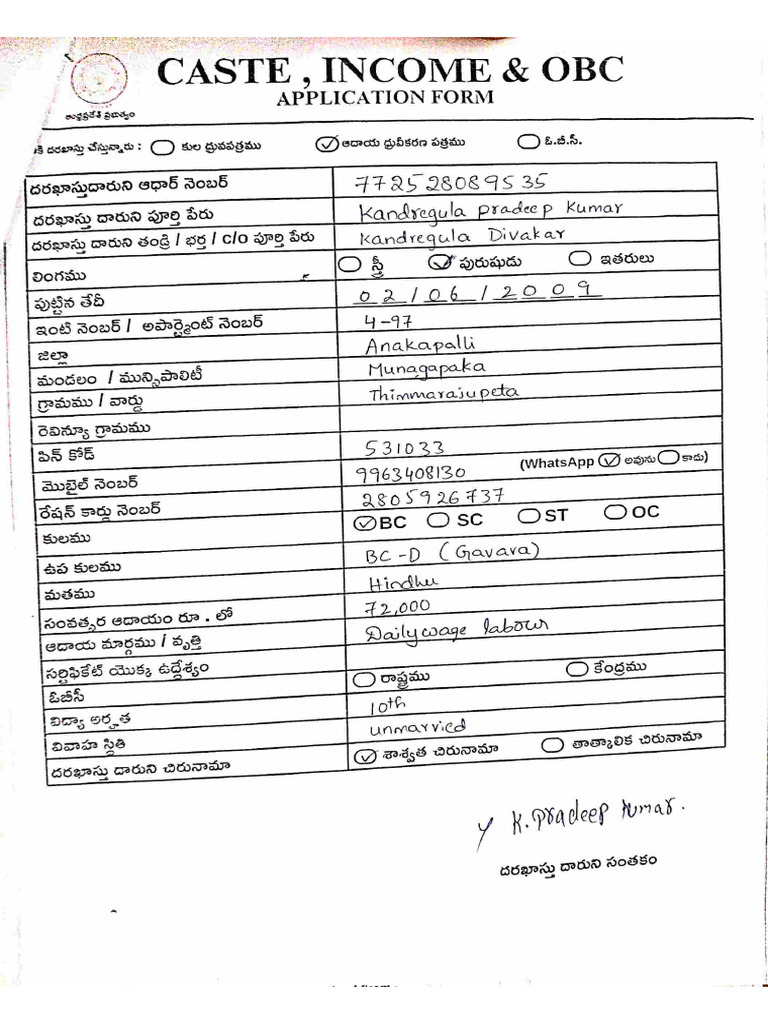 CASTE , INCOME & OBC
APPLICATION FORM
ఆంధ్రప్రదేశ్ ప్రభుత్వం
కి దరఖాస్తు చేస్తున్నారు : కుల ధ్రువపత్రము ఆదాయ ధ్రువీకరణ పత్రము ఓ.బీ.సీ.
దరఖాస్తుదారుని ఆధార్ నెంబర్ 772528089535
దరఖాస్తు దారుని పూర్తి పేరు Kandregula pradeep kumar
దరఖాస్తు దారుని తండ్రి / భర్త / c/o పూర్తి పేరు Kandregula Divakar
లింగము స్త్రీ పురుషుడు ఇతరులు
పుట్టిన తేదీ 02/06/2009
ఇంటి నెంబర్ / అపార్ట్మెంట్ నెంబర్ 4-97
జిల్లా Anakapalli
మండలం / మున్సిపాలిటీ Munagapaka
గ్రామము / వార్డు Thimmarajupeta
రెవిన్యూ గ్రామము
పిన్ కోడ్ 531033
మొబైల్ నెంబర్ 9963408130 (WhatsApp అవును కాదు)
రేషన్ కార్డు నెంబర్ 2805926737
కులము BC SC ST OC
ఉప కులము BC-D (Gavara)
మతము Hindhu
సంవత్సర ఆదాయం రూ . లో 72,000
ఆదాయ మార్గము / వృత్తి Dailywage labour
సర్టిఫికేట్ యొక్క ఉద్దేశ్యం
ఓబీసీ రాష్ట్రము కేంద్రము
విద్యా అర్హత 10th
వివాహ స్థితి unmarried
దరఖాస్తు దారుని చిరునామా శాశ్వత చిరునామా తాత్కాలిక చిరునామా
K. Pradeep kumar.
దరఖాస్తు దారుని సంతకం